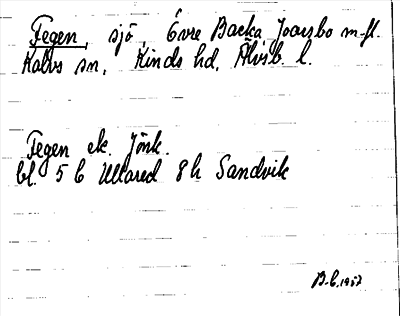 Fegen, sjö, Övre Backa, Joarsbo m.fl.
Kalvs sn, Kinds hd, Älvsb. l.
Fegen ek. Jönk.
bl. 5 C Ullared 8 h Sandvik
B.C. 1957